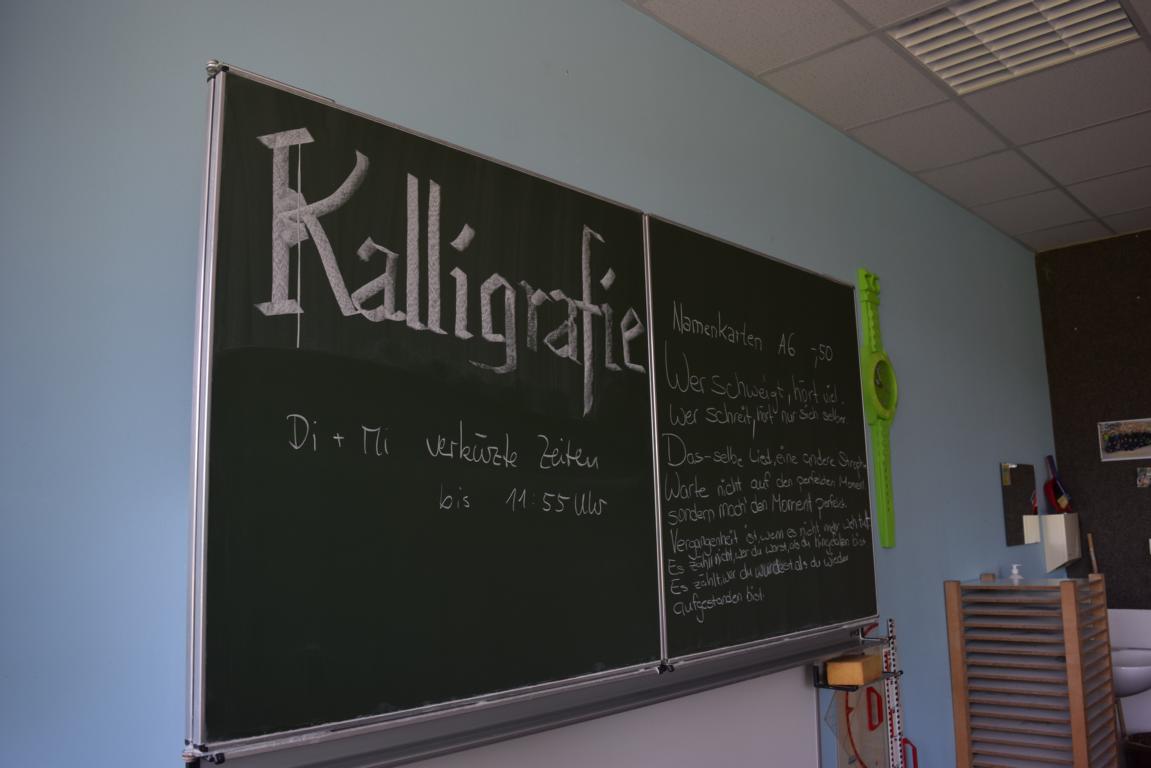 Kalligrafie
Di + Mi verkürzte Zeiten
bis 11:55 Uhr
Namenkarten A6 -,50
Wer schweigt, hört viel.
Wer schreit, hört nur sich selber.
Das-selbe Lied, eine andere Stroph
Warte nicht auf den perfekten Moment
sondern mach' den Moment perfekt.
Vergangenheit ist, wenn es nicht mehr weh tut
Es zählt nicht, wer du warst, als du hingefallen bist
Es zählt, wer du wurdest als du wieder
aufgestanden bist.